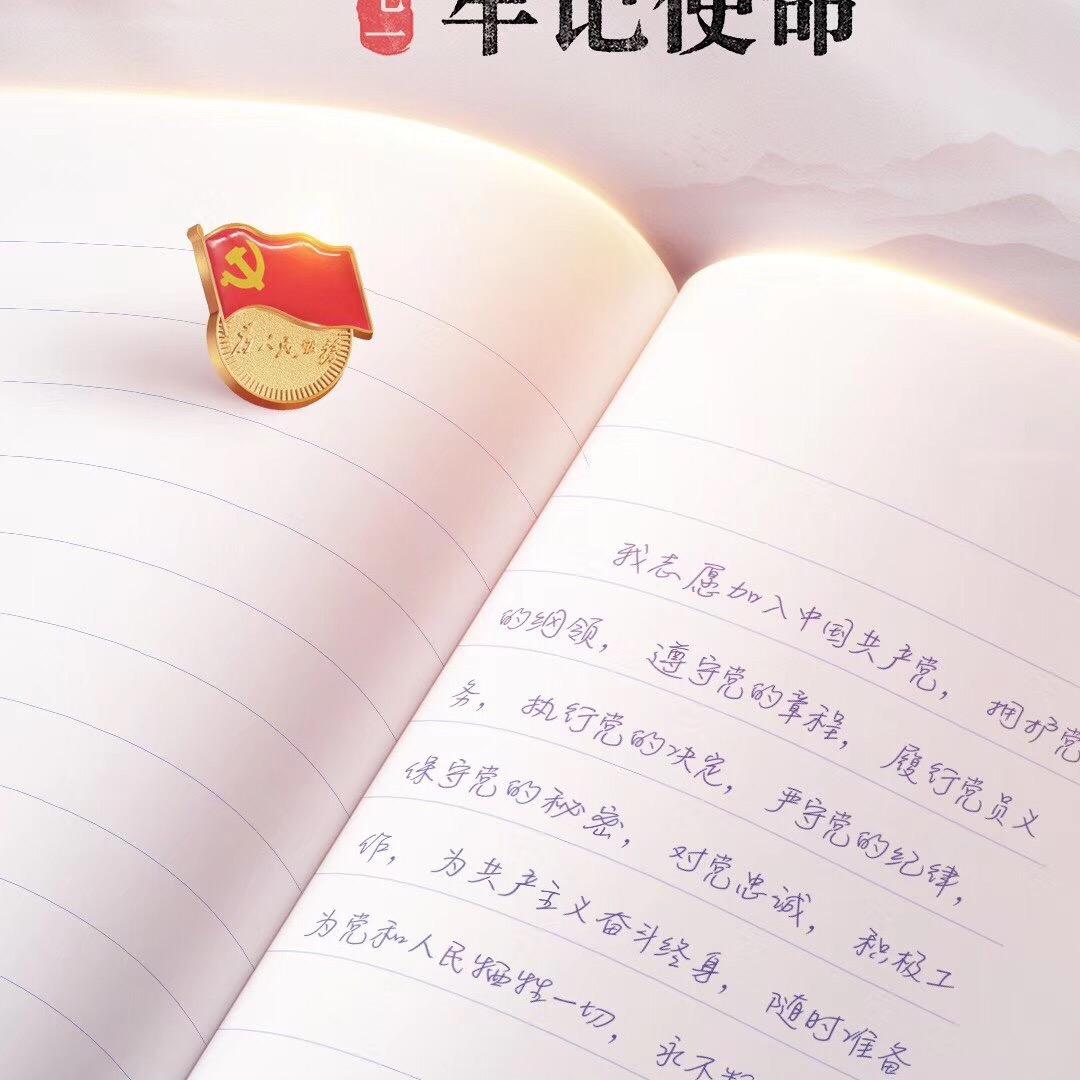 牢记使命
为人民服务
我志愿加入中国共产党，拥护党
的纲领，遵守党的章程，履行党员义
务，执行党的决定，严守党的纪律，
保守党的秘密，对党忠诚，积极工
作，为共产主义奋斗终身，随时准备
为党和人民牺牲一切，永不